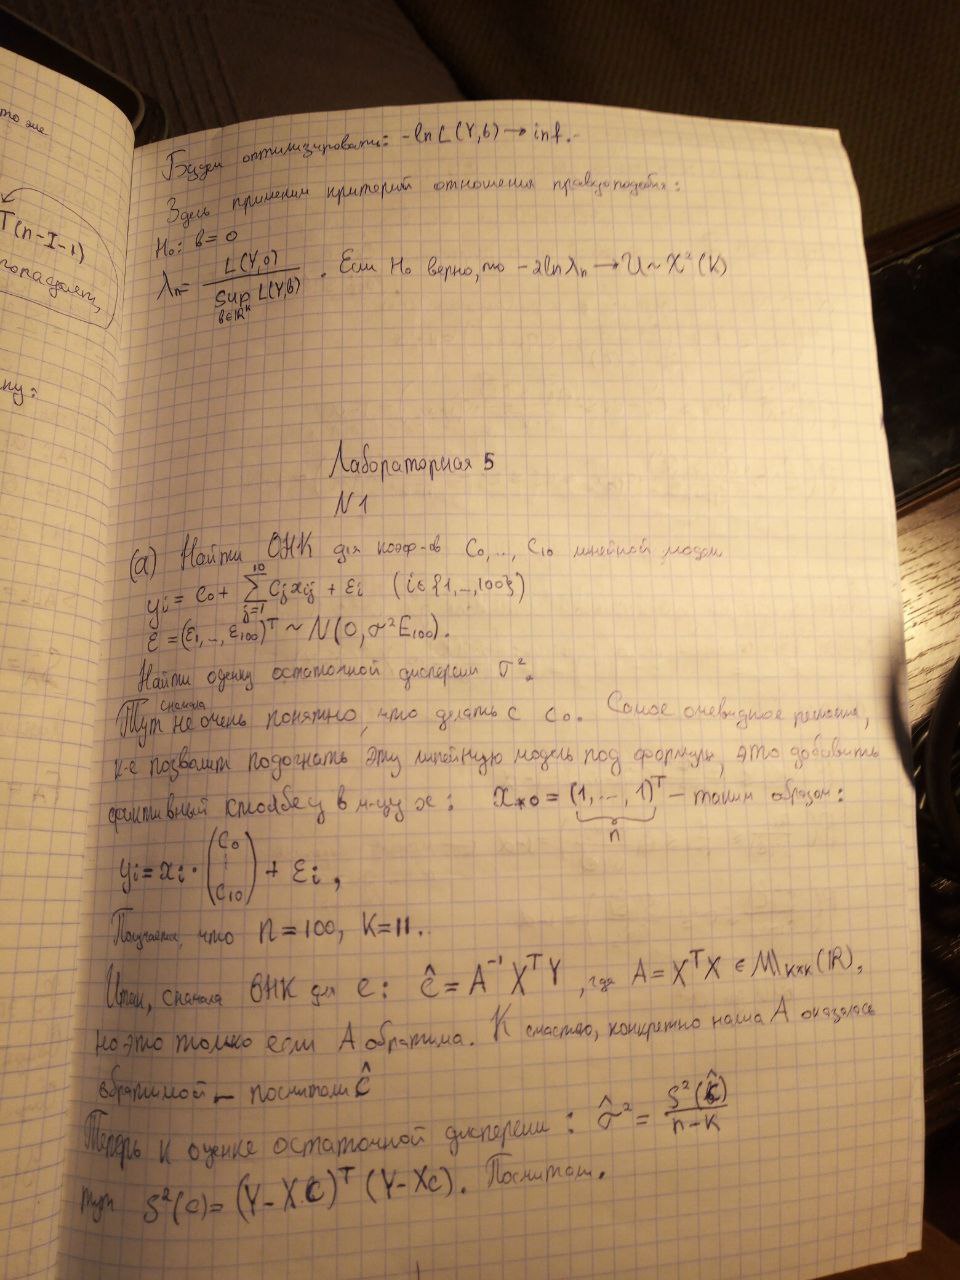 то же
T(n-I-1)
попадает,
ну:
Будем оптимизировать: -ln L(Y,b) → inf.
Здесь применим критерий отношения правдоподобия:
H₀: b = 0
λₙ = L(Y,0) / sup_{b∈ℝᴷ} L(Y,b) . Если H₀ верно, то -2lnλₙ → U ~ χ²(K)
Лабораторная 5
N1
(а) Найти ОНК для коэф-ов C₀,...,C₁₀ линейной модели
yi = C₀ + ∑_{j=1}^{10} Cj xij + εi (i∈{1,...,100})
ε = (ε₁,...,ε₁₀₀)ᵀ ~ N(0, σ²E₁₀₀).
Найти оценку остаточной дисперсии σ².
Тут сначала не очень понятно, что делать с C₀. Самое очевидное решение,
к-е позволит подогнать эту линейную модель под формулы, это добавить
фиктивный столбец в м-цу x: X*₀ = (1,...,1)ᵀ - таким образом:
n
yi = xi · (C₀ ⋮ C₁₀) + εi,
Получается, что n = 100, K = 11.
Итак, сначала ОНК для c: ĉ = A⁻¹XᵀY, где A = XᵀX ∈ M_{K×K}(ℝ),
но это только если A обратима. К счастью, конкретно наша A оказалась
обратимой - посчитали ĉ
Теперь к оценке остаточной дисперсии: σ̂² = S²(ĉ) / n-K
тут S²(c) = (Y-XC)ᵀ(Y-Xc). Посчитали.